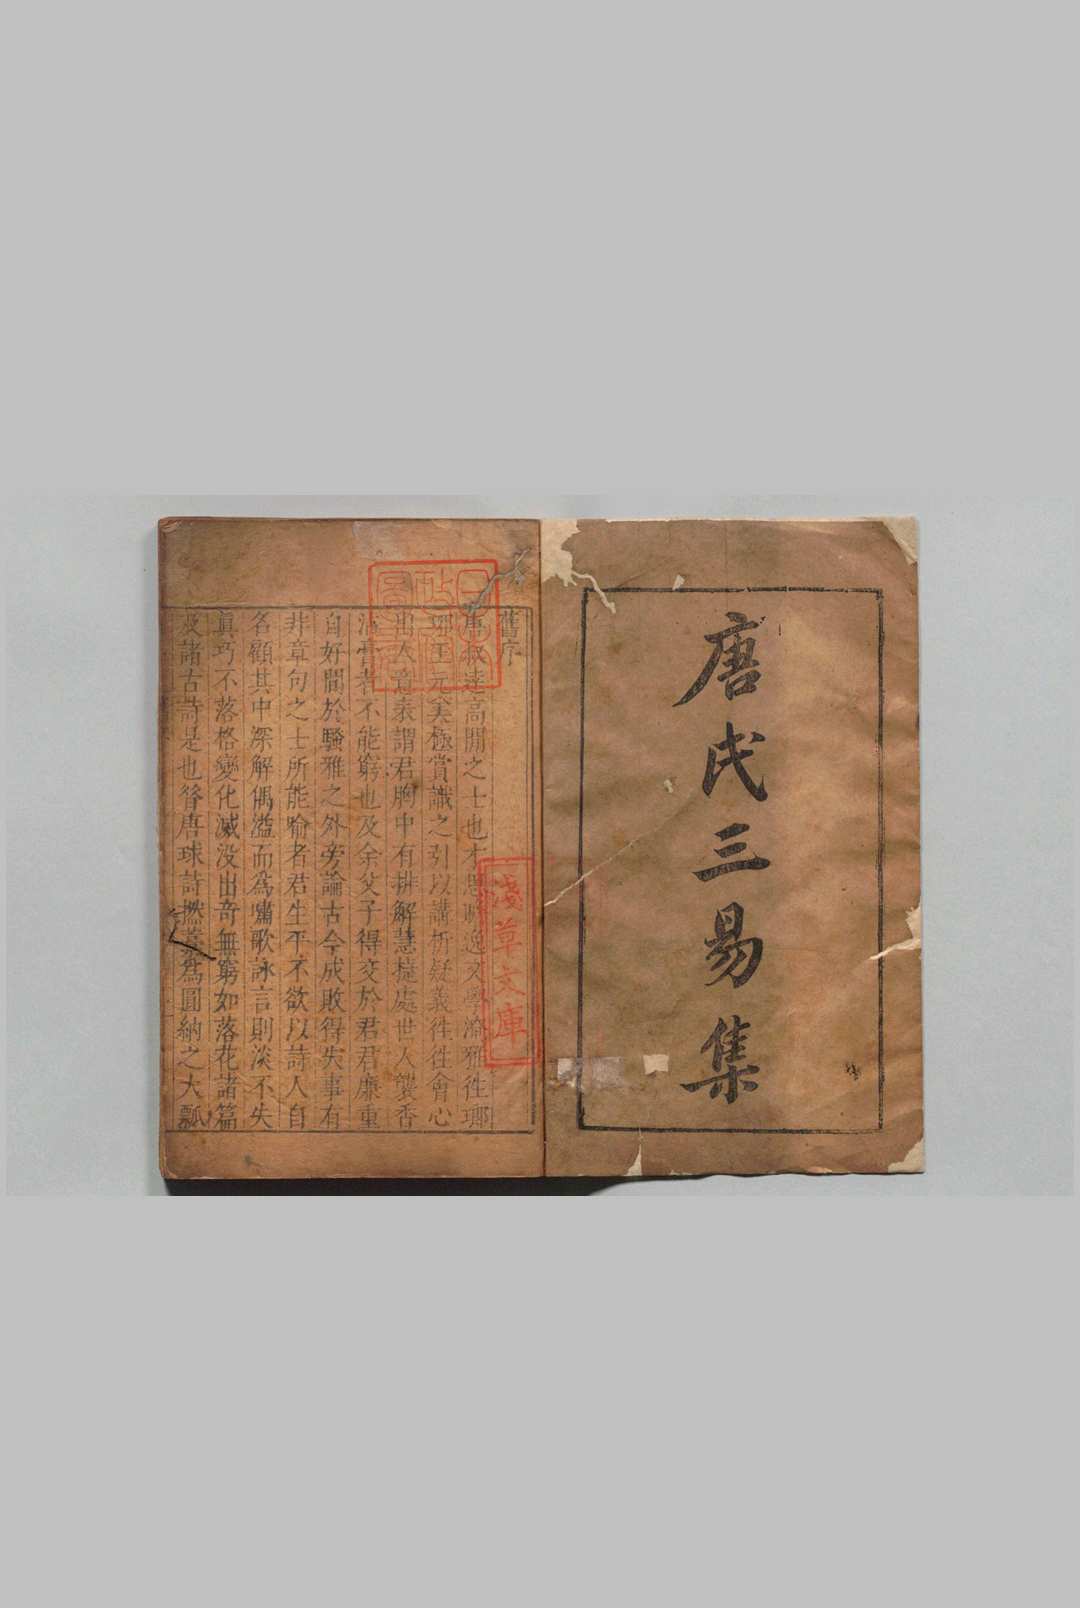 唐氏三易集
舊序
唐叔達高閒之士也才思 逸文學 雅徃瑯
琊王元美極賞識之引以講析疑義徃徃會心
出人意表謂君胸中有排解慧捷處世人襲香
沾膏者不能窮也及余父子得交於君君廉重
自好間於騷雅之外旁論古今成敗得失事有
非章句之士所能喻者君生平不欲以詩人自
名顧其中深解偶溢而為嘯歌詠言則淡不失
眞巧不落格變化滅没出竒無窮如落花諸篇
及諸古詩是也昝唐球詩撚藁為圓納之大瓢
淺草文庫